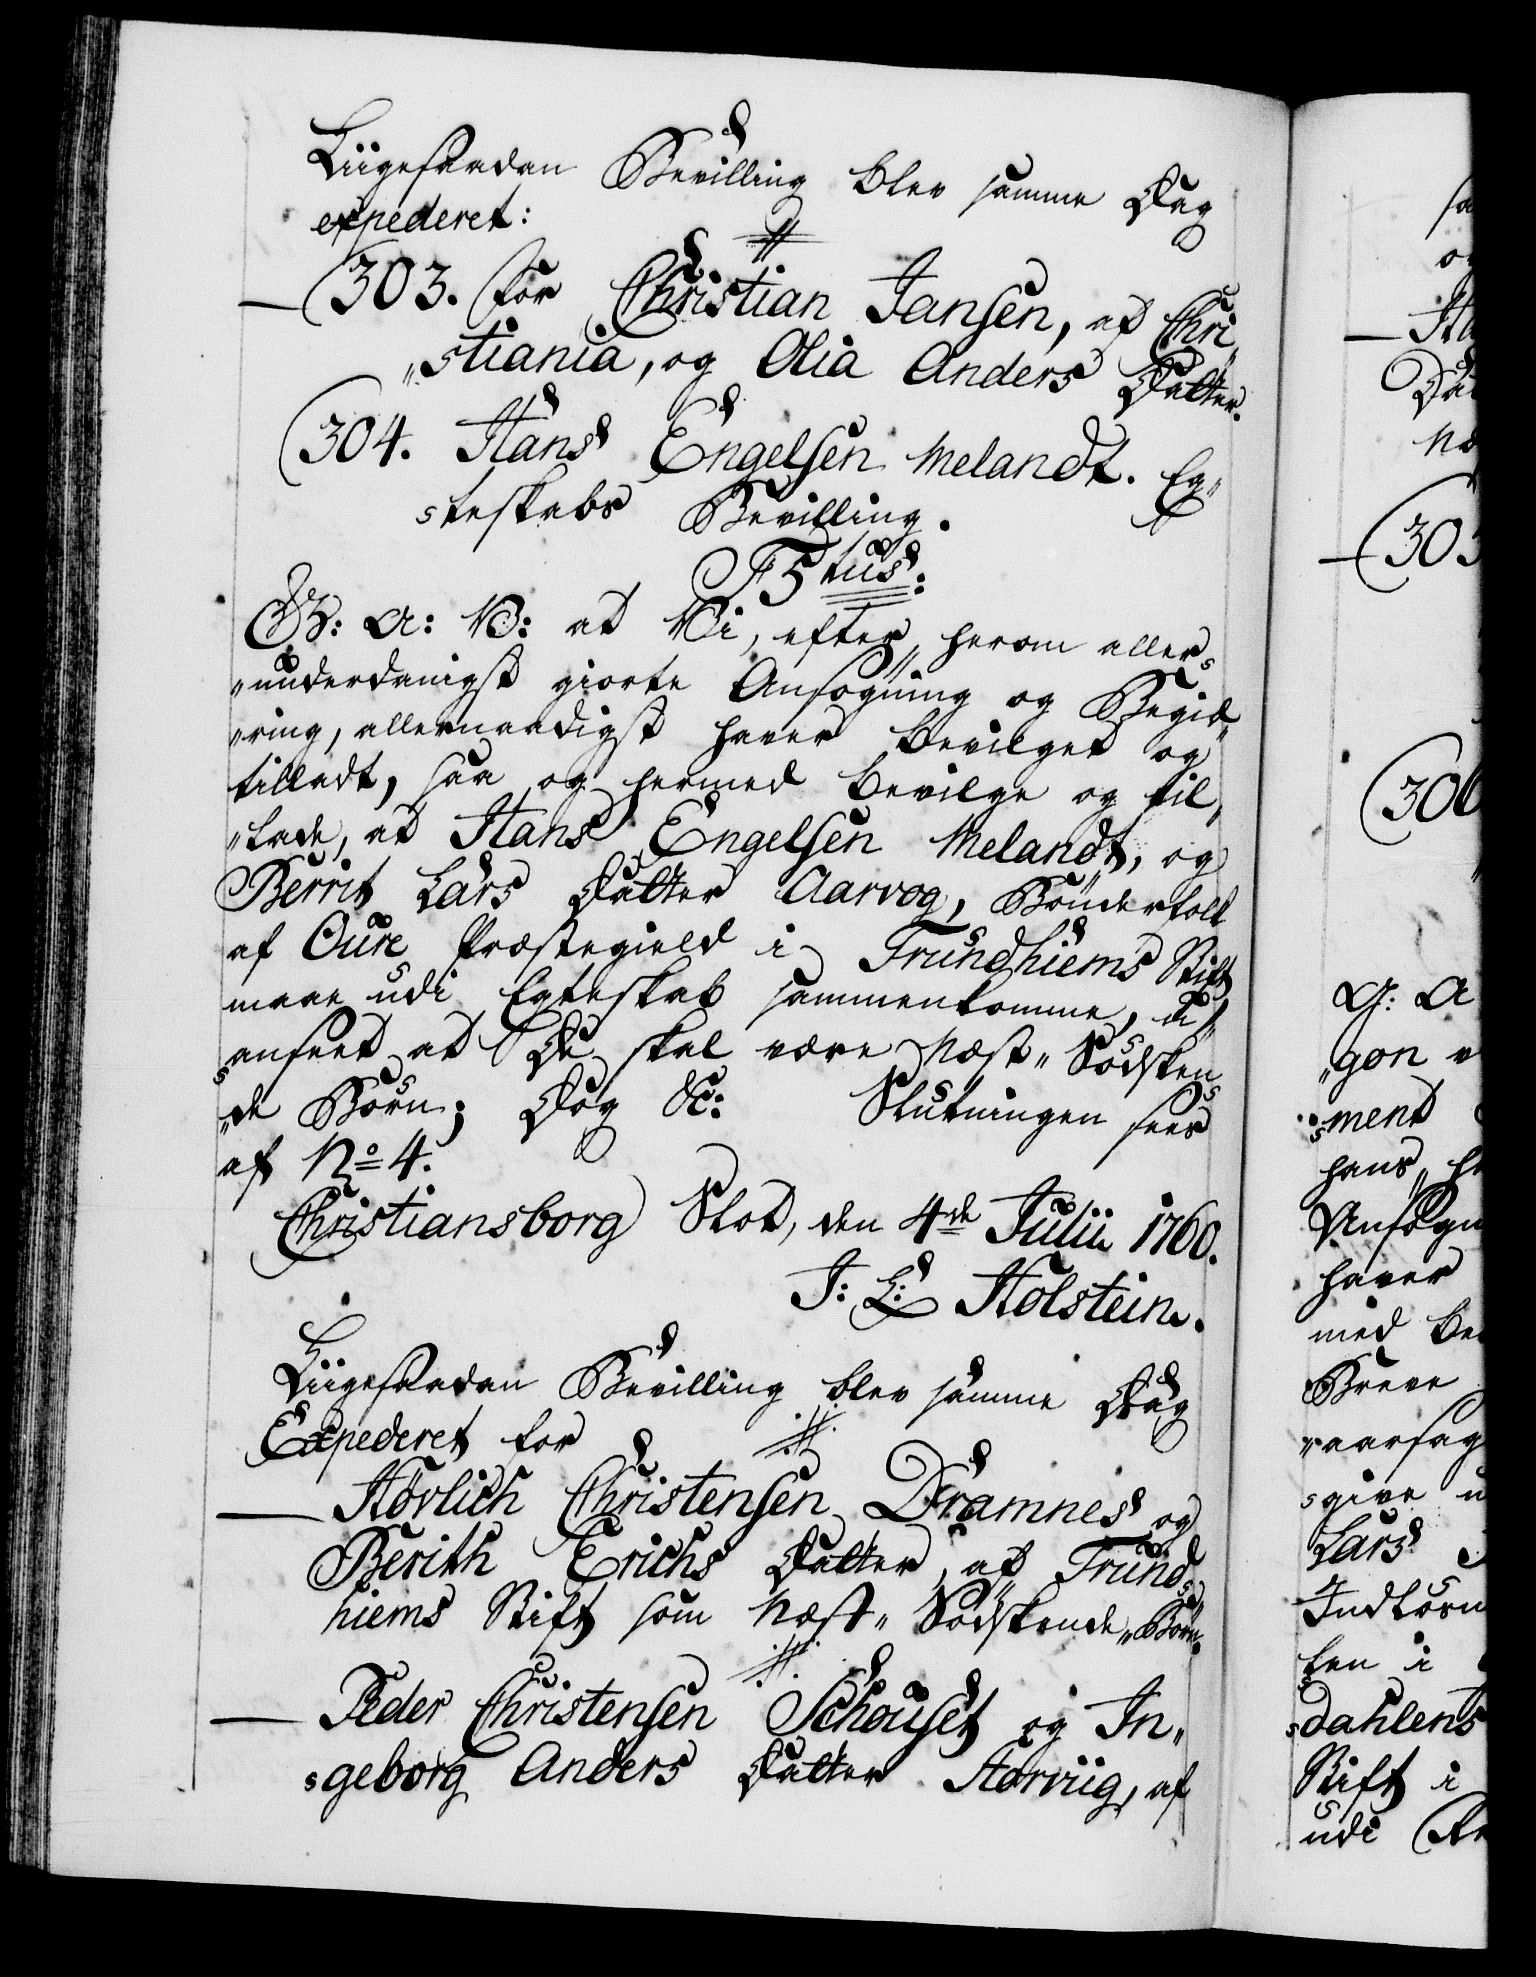 Liigesaadan Bevilling blev samme Dag
expederet:
303. for Christian Jansen, af Chri„
„stiania, og Olia Anders Datter.
304. Hans Engelsen Melandt. Eg„
teskabs Bevilling.
F 5 tus:
G: A: V: at Vi, efter herom aller„
„underdanigst giorte Ansøgning og Begiæ„
„ring, allernaadigst haver bevilget og
tilladt, saa og hermed bevilge og til„
„lade, at Hans Engelsen Melandt, og
Berrit Lars Datter Aarvog, Bønderfolk
af Oure Præstegield i Trundhiems Stift
maae udi Egteskab sammenkomme, u„
anseet at De skal være Næst„ Sødsken„
„de Børn; Dog &c: Slutningen sees
af No 4.
Christiansborg Slot, den 4de Julii 1760.
J: L: Holstein.
Liigesaadan Bevilling blev samme Dag
Expederet for
Hørlich Christensen Dramnes og
Berith Erichs Datter, af Trund„
hiems Stift som Næst„ Sødskende„ Børn.
Peder Christensen Schouset og In„
geborg Anders Datter Harviig, af
sa
og
Ha
Da
Næ
305
306
G: A
„gon v
ment
hans
Ansøgn
haver
med be
Breve
„aarsag
give u
Lars
Indkorn
ten i
dahlens
Stift i
udi